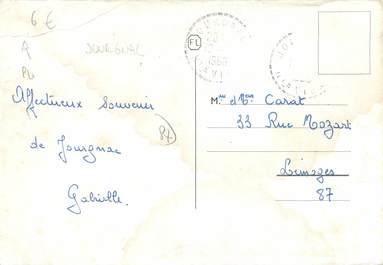 6 €
A
JOURGNAC
Affectueux Souvenir
de Jourgnac
Gabrielle.
87
FL
1968
M. et Mme Carat
33 Rue Mozart
Limoges
87